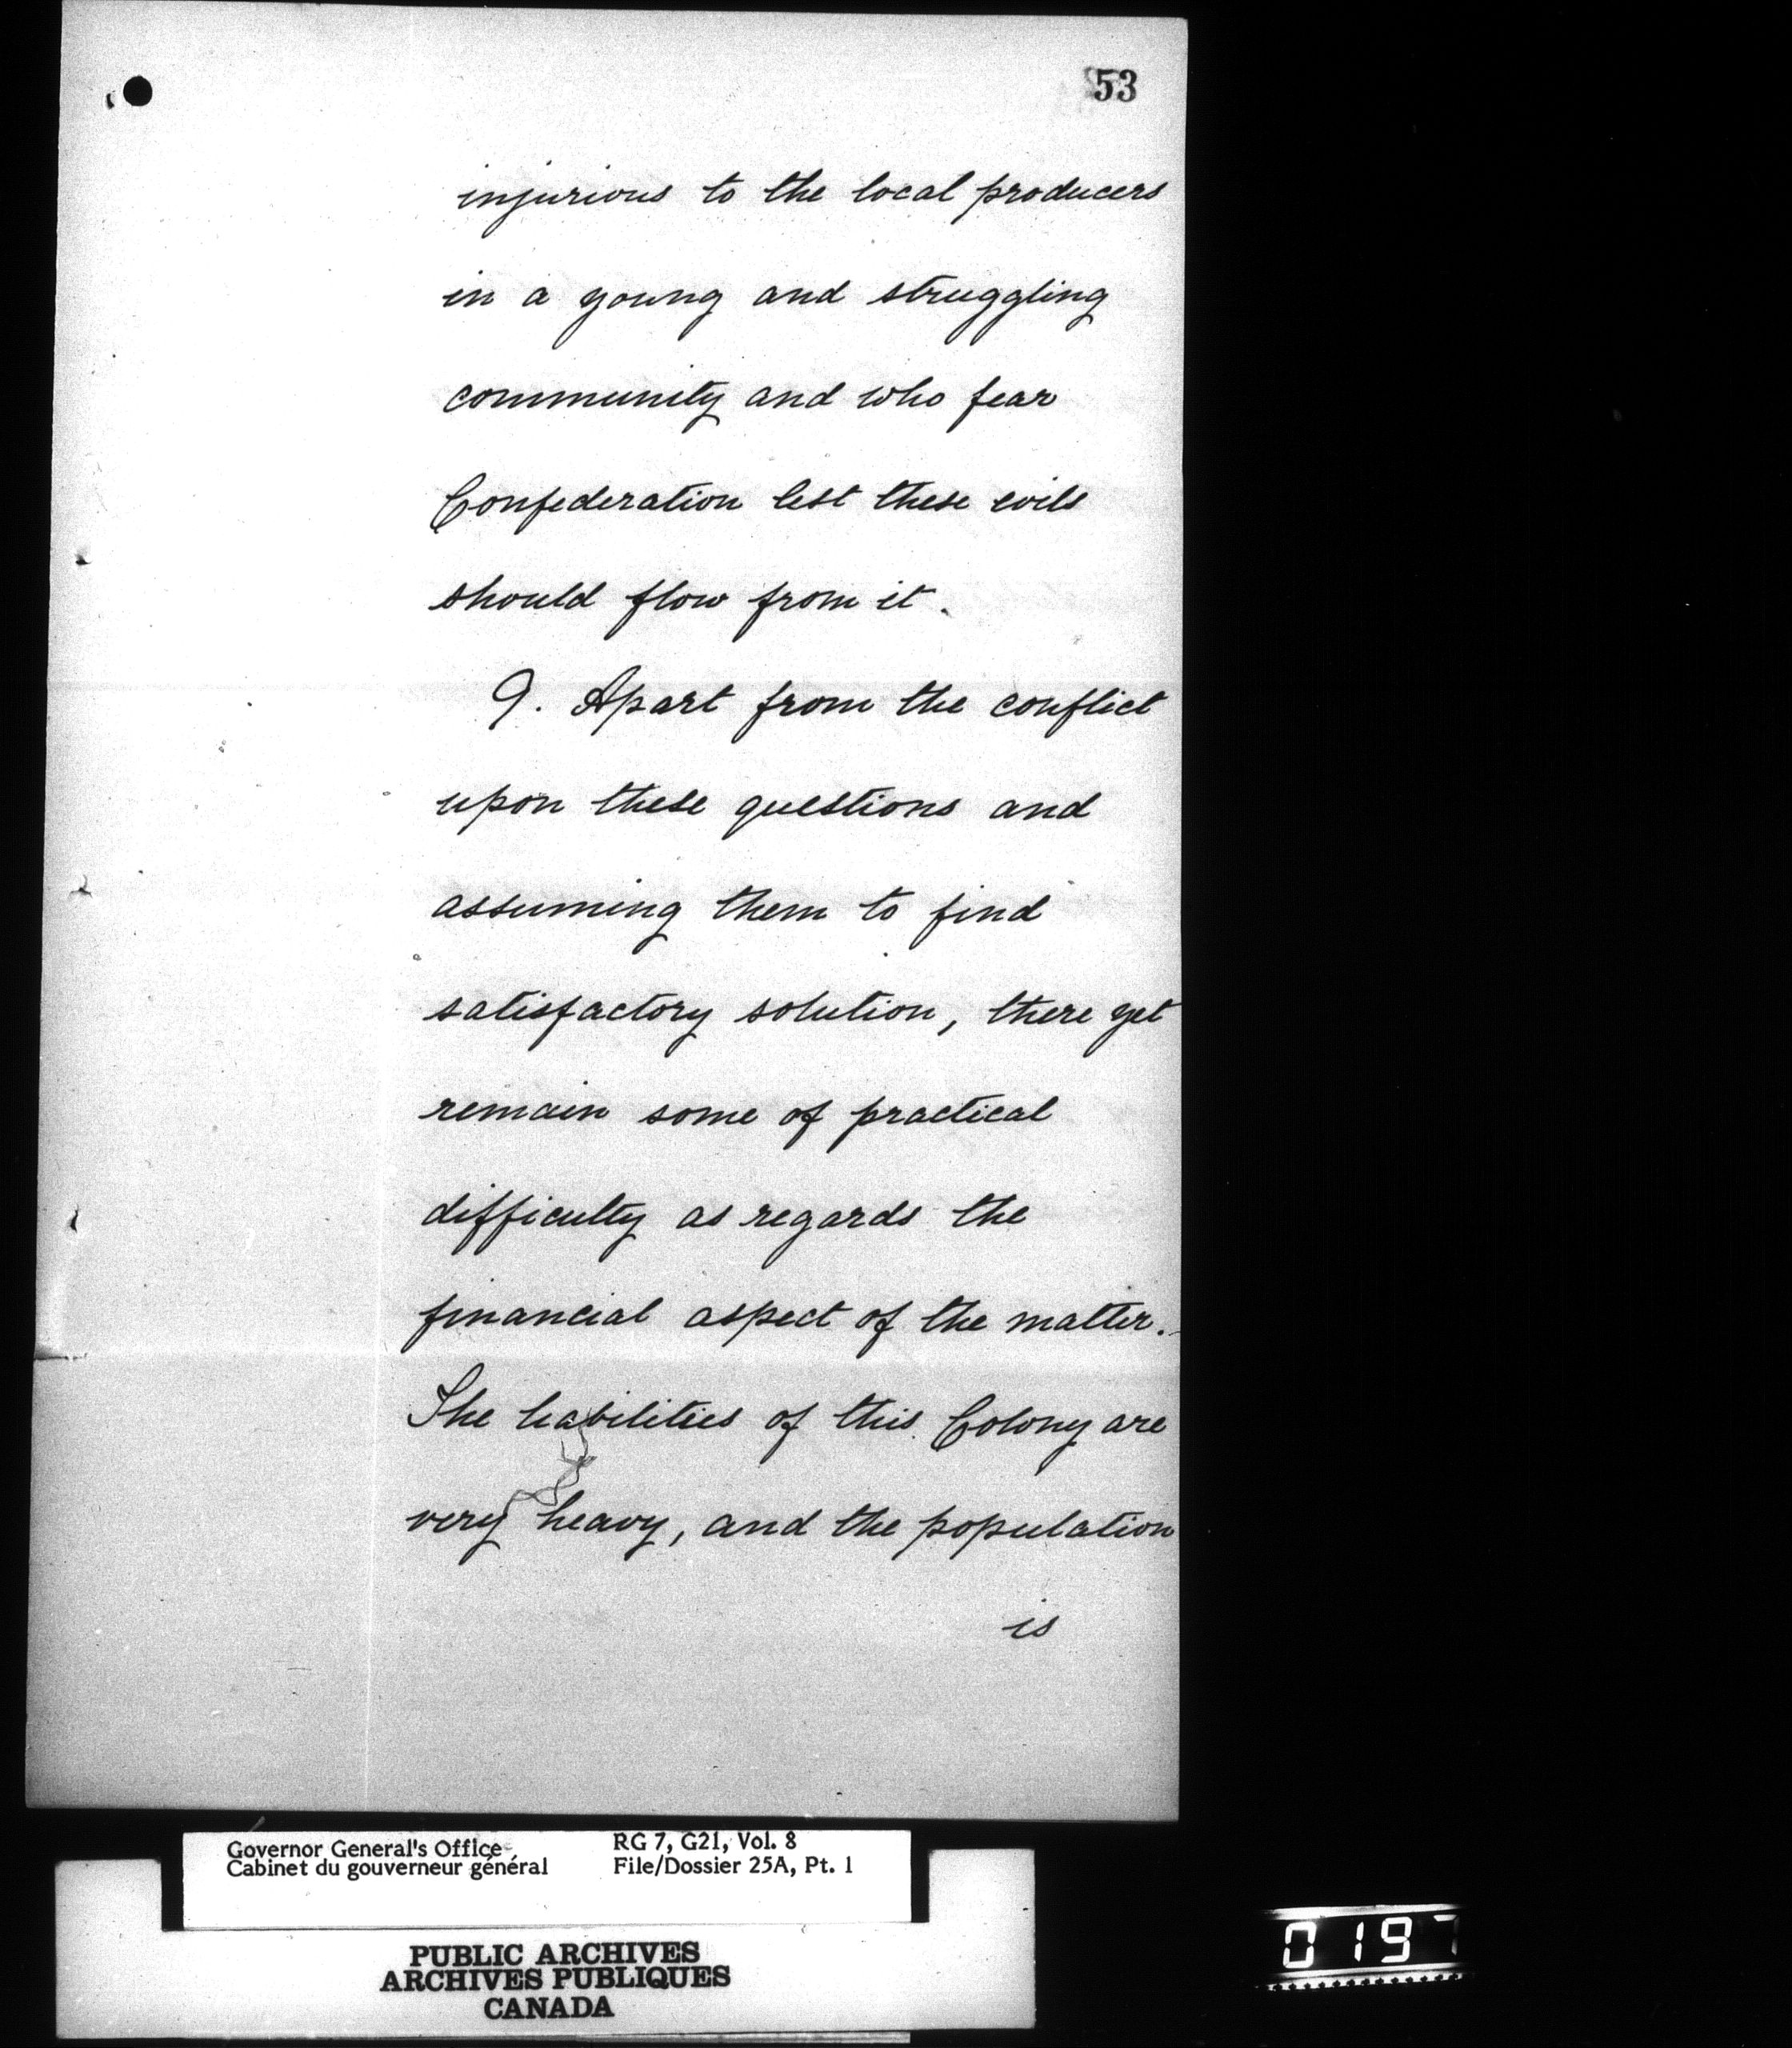 53
injurious to the local producers
in a young and struggling
community and who fear
Confederation lest these evils
should flow from it.
9. Apart from the conflict
upon these questions and
assuming them to find
satisfactory solution, there yet
remain some of practical
difficulty as regards the
financial aspect of the matter.
The liabilities of this Colony are
very heavy, and the population
is
Governor General's Office
Cabinet du gouverneur général
RG 7, G21, Vol. 8
File/Dossier 25A, Pt. 1
PUBLIC ARCHIVES
ARCHIVES PUBLIQUES
CANADA
0197